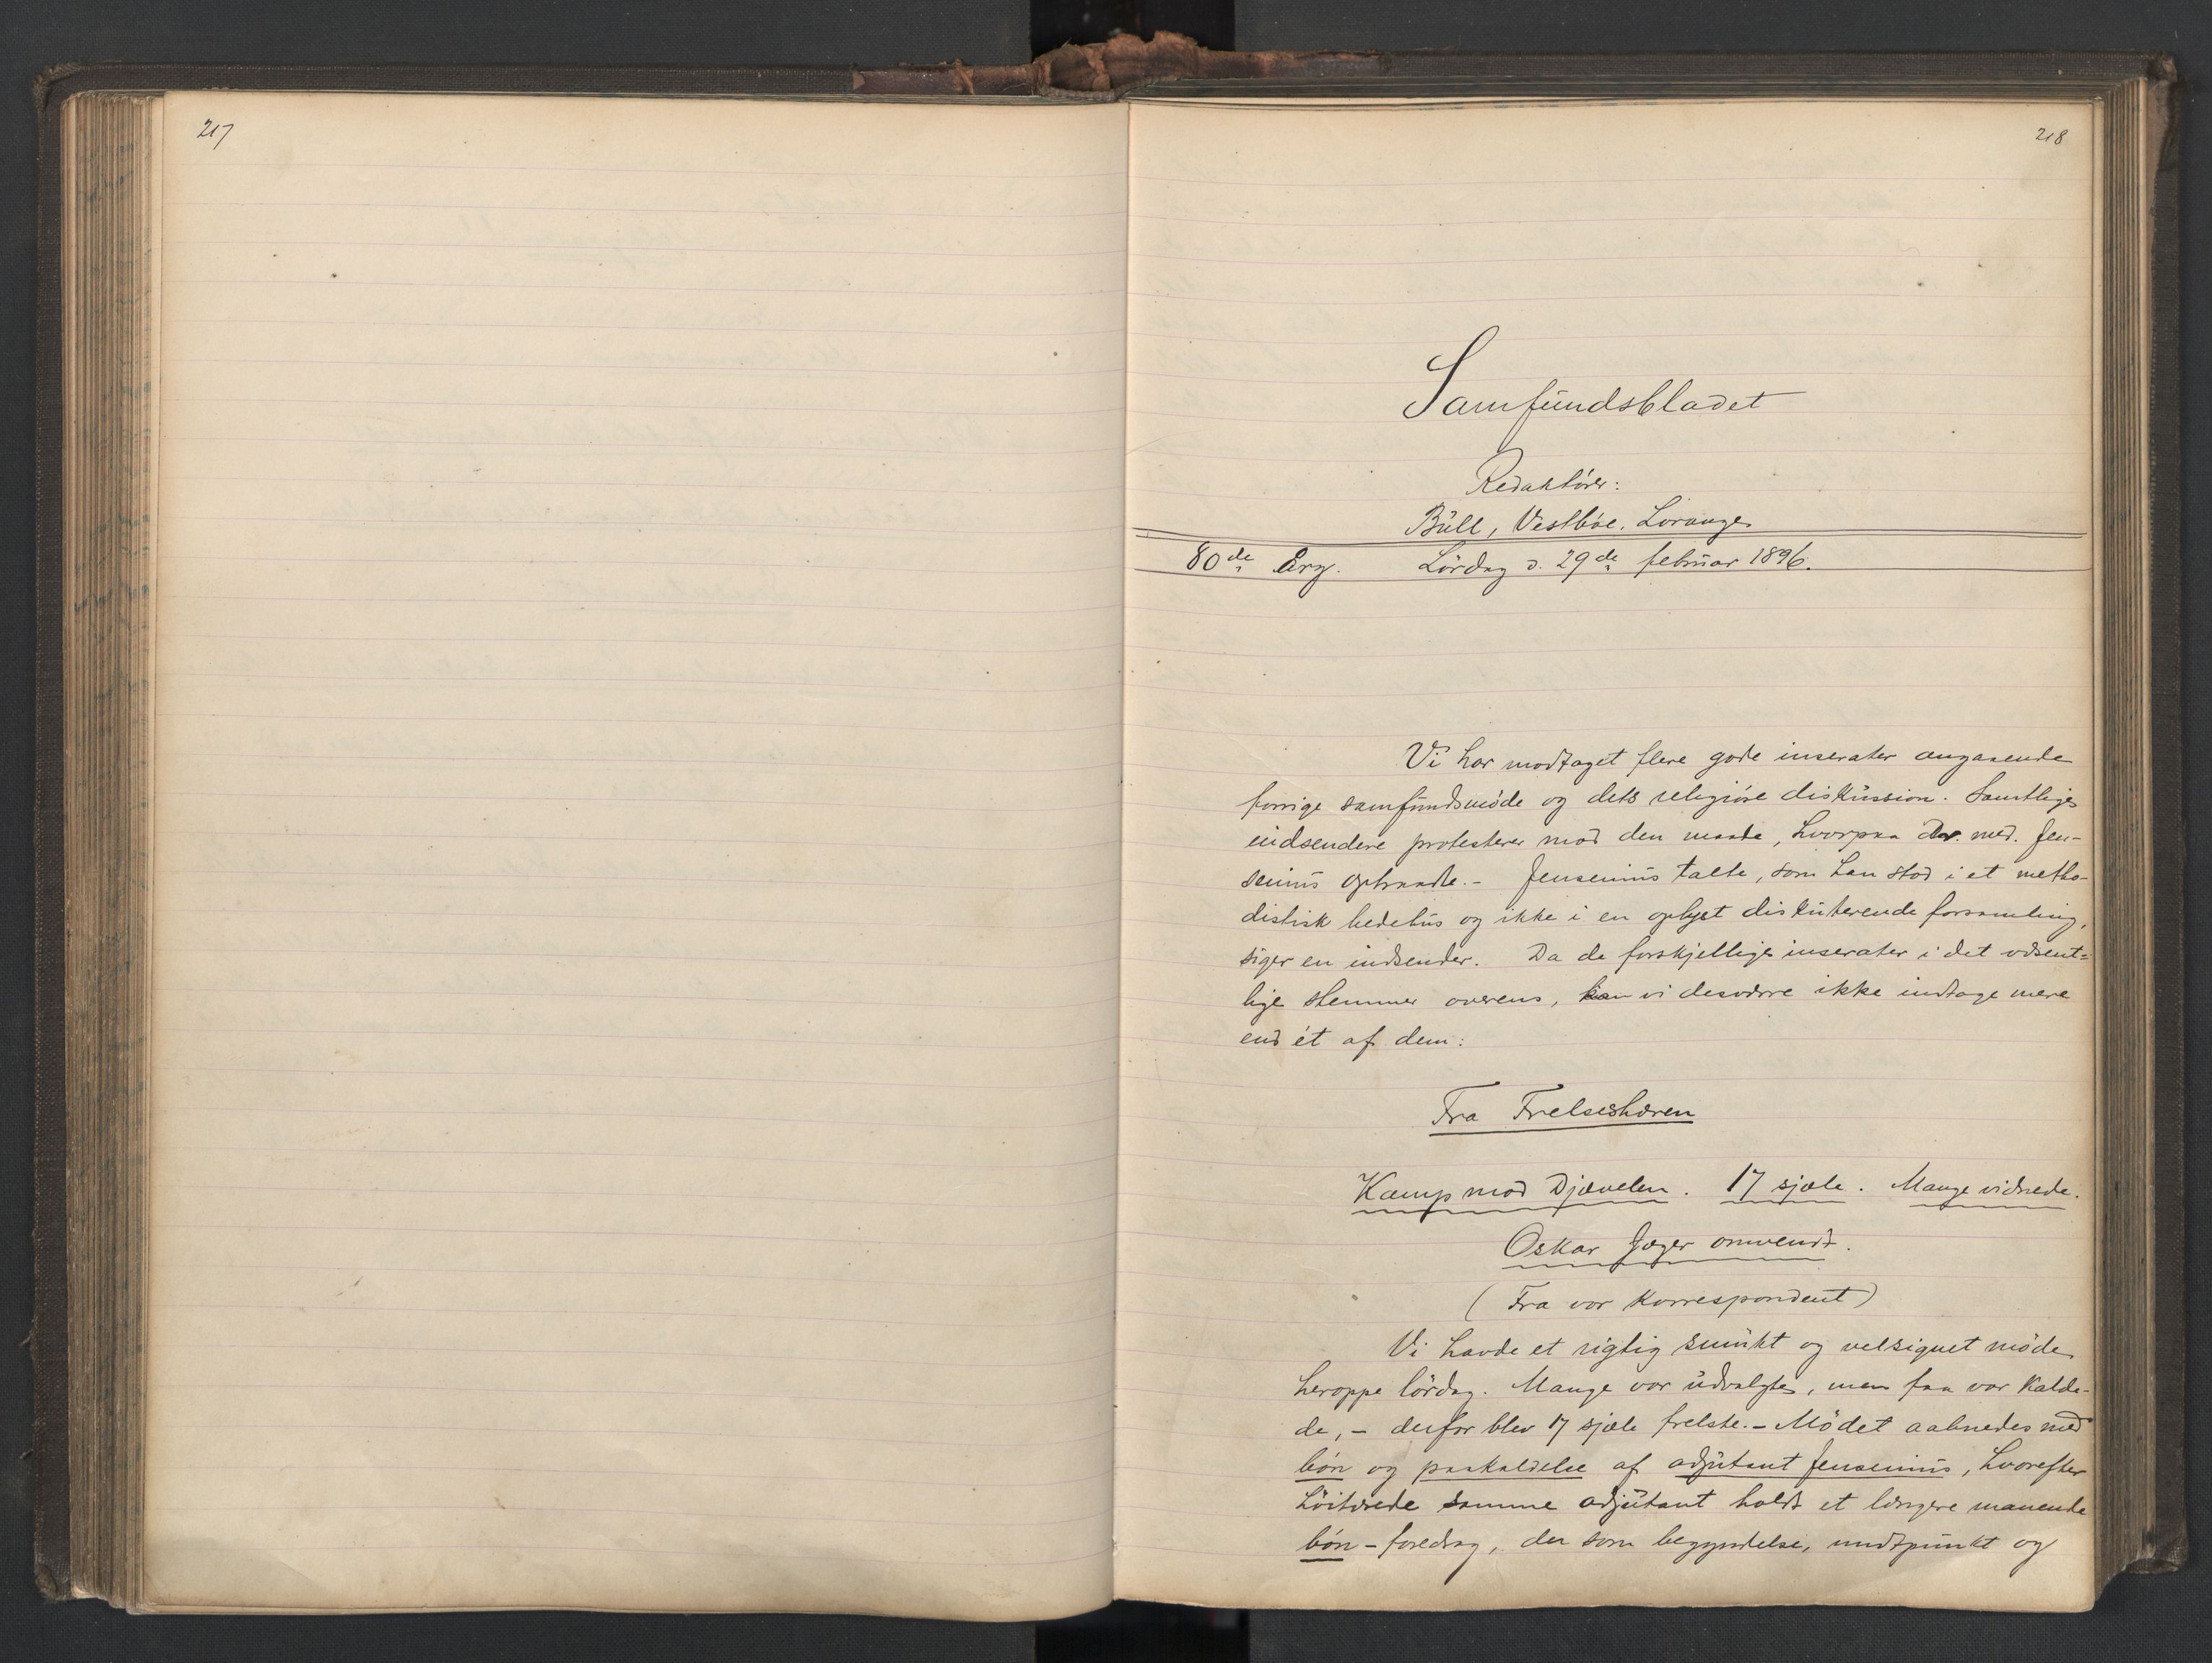 217
218
Samfundsbladet
Redaktører:
Bull, Vestbøe, Lorange
80de Årg. Lördag d. 29de februar 1896.
Vi har modtaget flere gode inserater angaaende
forrige samfundsmöde og dets religiöse diskussion. Samtlige
indsendere protesterer mod den maade, hvorpaa Dr. med. Jen-
senius optraadte. - Jensenius talte, som han stod i et metho-
distisk bedehus og ikke i en oplyst diskuterende forsamling,
siger en indsender. Da de forskjellige inserater i det væsent=
lige stemmer overens, kan vi desværre ikke indtage mere
end ét af dem:
Fra Frelseshæren
Kamp mod Djævelen. 17 sjæle. Mange vidnede.
Oskar Jæger omvendt.
(Fra vor Korrespondent)
Vi havde et rigtig smukt og velsignet möde
heroppe lördag. Mange var udvalgte, men faa var kalde-
de, - derfor blev 17 sjæle frelste. - Mödet aabnedes med
bön og paakaldelse af adjutant Jensenius, hvorefter
höitærede samme adjutant holdt et længere manende
bön - foredrag, der som begyndelse, midtpunkt og